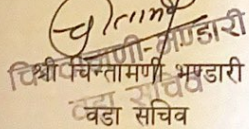 चिन्तामणी भण्डारी
वडा सचिव
श्री चिन्तामणी भण्डारी
वडा सचिव